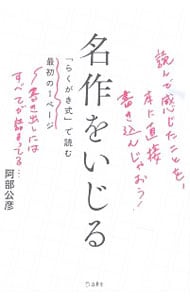 名作をいじる
「らくがき式」で読む
最初の1ページ
阿部公彦
読んで感じたことを、
本に直接
書き込んじゃおう！
書き出しには
すべてが詰まってる…
立東舎